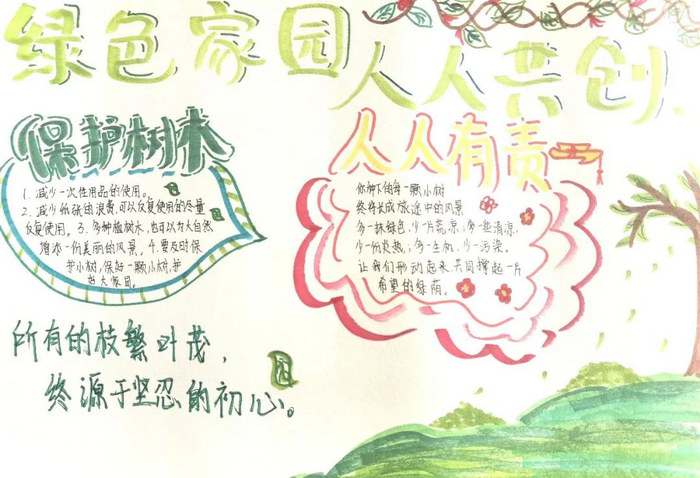 绿色家园人人共创
保护树木
1. 减少一次性用品的使用。
2. 减少纸张的浪费,可以反复使用的尽量
反复使用。3. 多种植树木,也可以为大自然
增添一份美丽的风景。4. 要及时保
护小树,保护一颗小树,护
好大家园。
人人有责
你种下的每一颗小树
终将长成旅途中的风景
多一抹绿色,少一片荒凉;多一些清凉,
少一份炎热;多一点树,少一污染。
让我们行动起来共同撑起一片
希望的绿荫。
所有的枝繁叶茂,
终源于坚忍的初心。